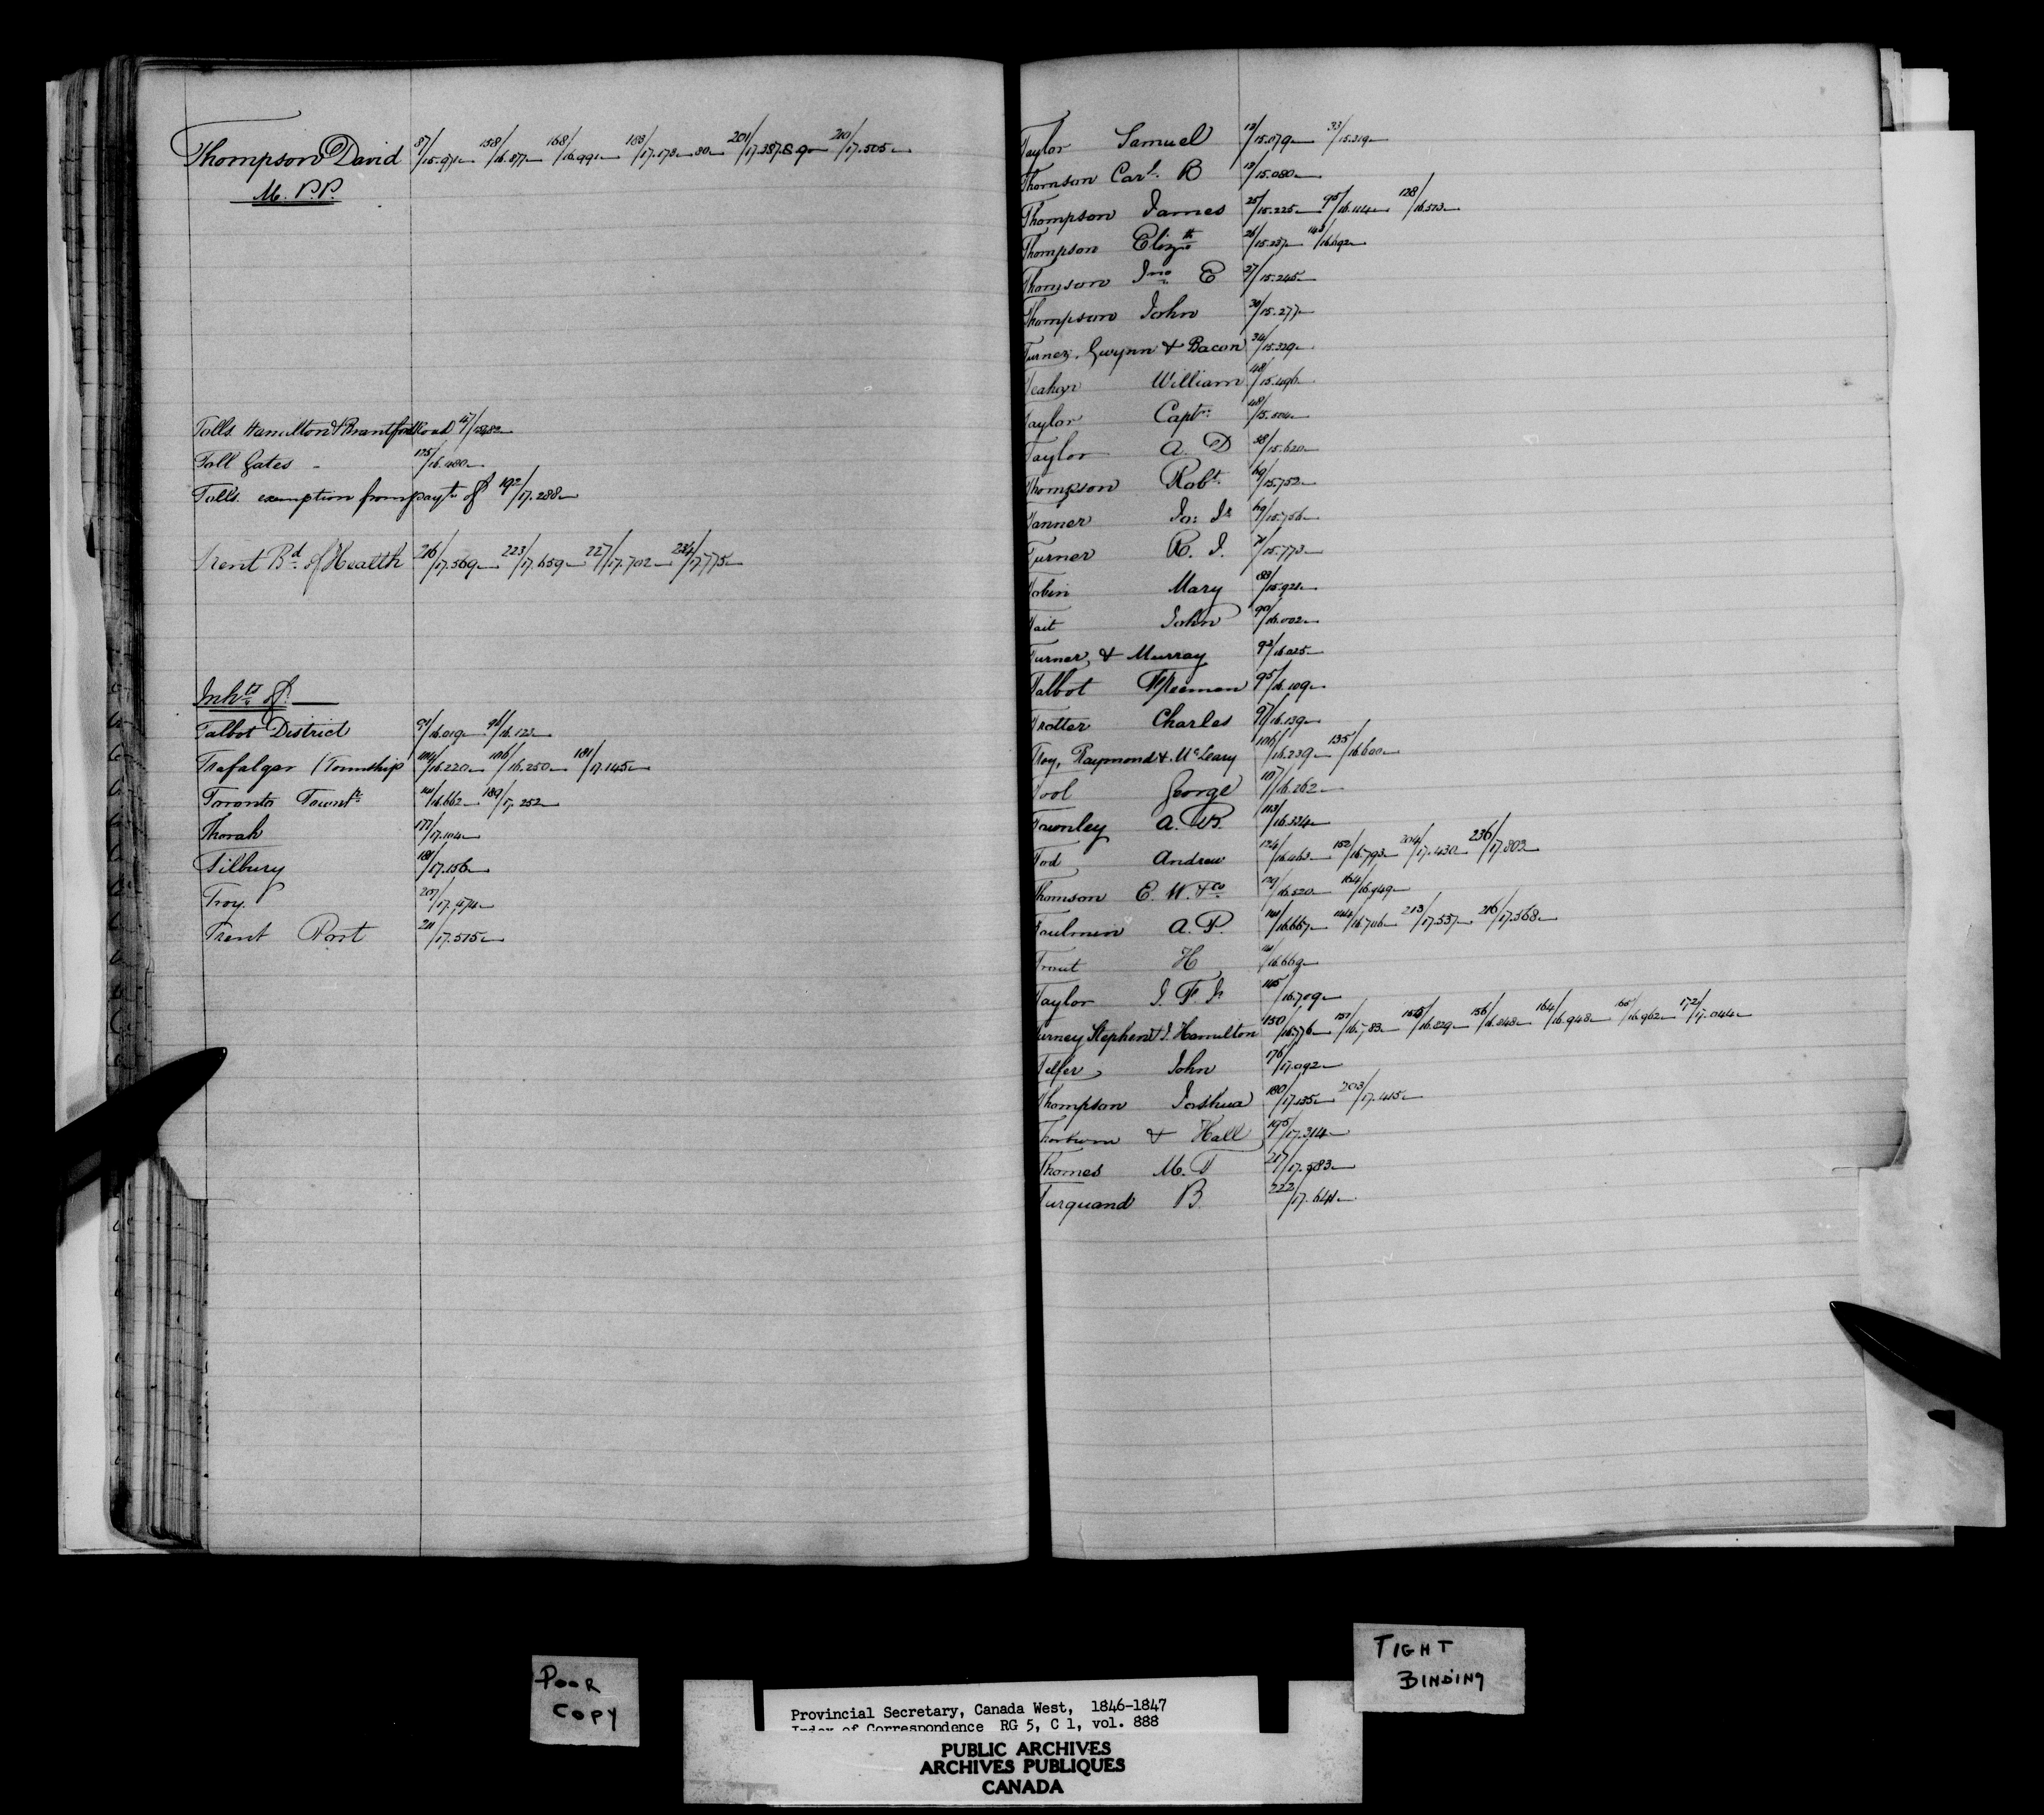 Thompson David 87/15.971 158/16.877 168/16.991 183/17.173 80 201/17.387.8.9 210/17.505
M. P. P.
Tolls Hamilton & Brantford Road 47/15482
Toll Gates 125/16.480
Tolls exemption from payt. of 192/17.288
Trent Bd. of Health 216/17.569 223/17.659 227/17.702 234/17.775
Inhts. of
Talbot District 91/16.019 96/16.123
Trafalgar (Township 104/16.220 106/16.250 181/17.145
Toronto Township 141/16.662 189/17.252
Thorah 177/17.104
Tilbury 181/17.156
Troy. 207/17.474
Trent Port 211/17.515
Taylor Samuel 13/15.079 33/15.319
Thomson Cart. B 13/15.080
Thompson James 25/15.225 95/16.114 128/16.513
Thompson Elizth 26/15.237 143/16.692
Thomson Jno. E 27/15.245
Thompson John 30/15.277
Turner, Gwynn & Bacon 34/15.329
William 48/15.496
Taylor Captn. 48/15.504
Taylor A. D 58/15.620
Thompson Robt. 69/15.752
Tanner Jo: Jr 69/15.756
Turner R. J. 71/15.773
Tobin Mary 83/15.921
Tait John 90/16.002
Turner, & Murray 92/16.025
Talbot Freeman 95/16.109
Trotter Charles 97/16.139
Troy, Raymond & McLeary 106/16.239 135/16.600
Tool George 107/16.262
Townley A. B. 113/16.334
Tod Andrew 124/16.463 152/16.793 204/17.430 236/17.802
Thomson E. W. & Co 129/16.520 164/16.949
A. P. 141/16.667 144/16.706 213/17.537 216/17.568
Trout H 141/16.669
Taylor J. F. Jr 145/16.709
Turney Stephen & J. Hamilton 150/16.776 151/16.783 155/16.829 156/16.848 164/16.948 165/16.962 172/17.044
Telfer John 176/17.092
Thompson Joshua 180/17.135 203/17.415
Thorburn & Hall 195/17.314
Thomes M. T 217/17.583
Turquand B. 222/17.641
POOR
COPY
TIGHT
BINDING
Provincial Secretary, Canada West, 1846-1847
Index of Correspondence RG 5, C 1, vol. 888
PUBLIC ARCHIVES
ARCHIVES PUBLIQUES
CANADA